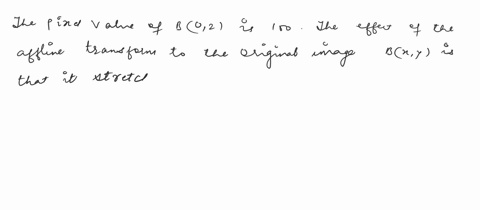 The pixel value of B(0,2) is 100. The effect of the
affline transform to the original image B(x,y) is
that it stretch